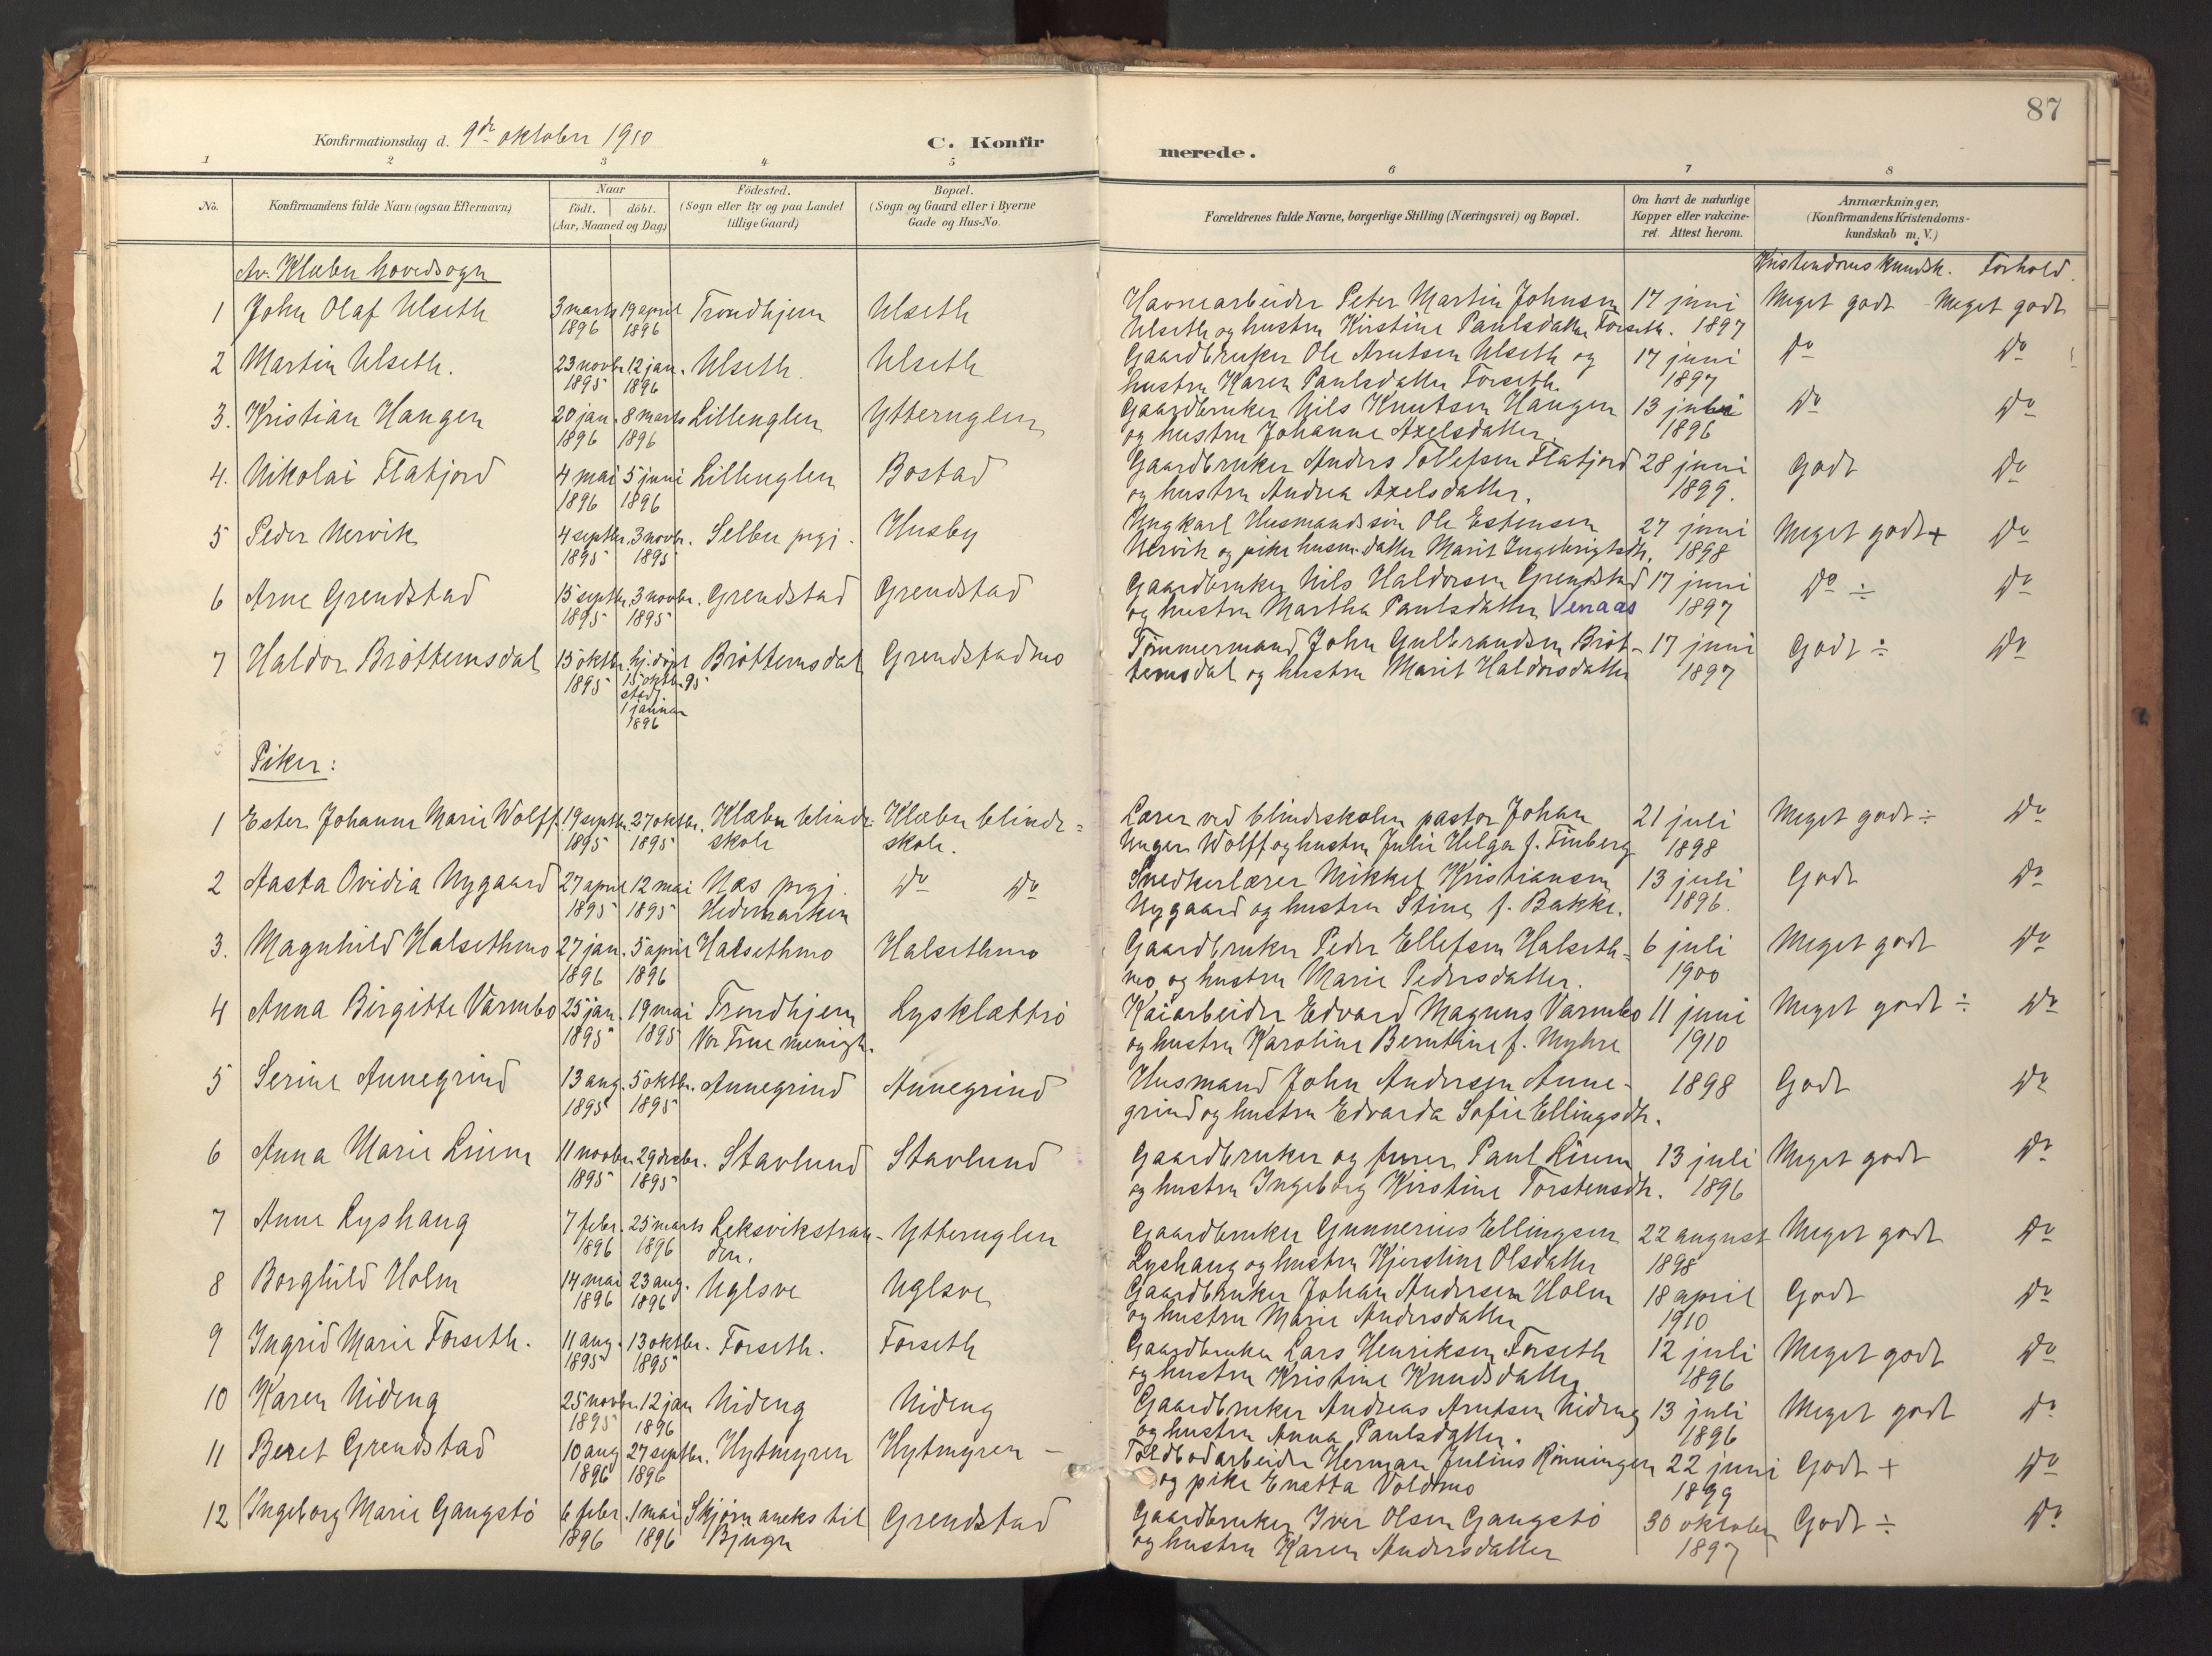 87
Konfirmationsdag d. 9de oktober 1910
C. Konfirmerede.
1 2 3 4 5 6 7 8
No.
Konfirmandens fulde Navn (ogsaa Efternavn)
Naar
født. døbt.
(Aar, Maaned og Dag)
Födested.
(Sogn eller By og paa Landet
tillige Gaard)
Bopæl.
(Sogn og Gaard eller i Byerne
Gade og Hus-No.
Forældrenes fulde Navne, borgerlige Stilling (Næringsvei) og Bopæl.
Om havt de naturlige
Kopper eller vakcine-
ret. Attest herom.
Anmærkninger.
(Konfirmandens Kristendoms-
kundskab m. V.)
Kristendomskundsk. Forhold.
Av. Klæbu hovedsogn
1 John Olaf Ulseth 3 marts 19 april Trondhjem Ulseth Havnearbeider Peter Martin Johnsen 17 juni Meget godt - Meget godt
1896 1896 Ulseth og hustru Kirstine Paulsdatter Forseth. 1897
2 Martin Ulseth. 23 novbr. 12 jan. Ulseth Ulseth Gaardbruker Ole Arntsen Ulseth og 17 juni Do Do
1895 1896 hustru Karen Paulsdatter Forseth. 1897
3. Kristian Haugen 20 jan. 8 marts Lilleuglen Ytteruglen Gaardbruker Nils Knutsen Haugen 13 juli Do Do
1896 1896 og hustru Johanne Axelsdatter. 1896
4. Nikolai Flatjord 4 mai 5 juni Lilleuglen Bostad Gaardbruker Anders Tollefsen Flatjord 28 juni Godt Do
1896 1896 og hustru Andrea Axelsdatter. 1899.
5 Peder Nervik 4 septbr. 3 novbr. Selbu prgj. Husby Ungkarl Husmandssøn Ole Estensen 27 juni Meget godt + Do
1895 1895 Nervik og pike husm.datter Marit Ingebrigtsdtr. 1898
6 Arne Grendstad 15 septbr. 3 novbr. Grendstad Grendstad Gaardbruker Nils Haldorsen Grendstad 17 juni Do ÷ Do
1895 1895 og hustru Martha Paulsdatter Venaas 1897
7 Haldor Bröttemsdal 15 oktbr. hj.døpt Bröttemsdal Grendstadmo Tömmermand John Gulbrandsen Bröt- 17 juni Godt ÷ Do
1895 15 oktbr. 95 temsdal og hustru Marit Haldorsdatter 1897
stadf.
1 januar
1896
Piker:
1 Ester Johanne Marie Wolff. 19 septbr. 27 oktbr. Klæbu blinde- Klæbu blinde- Lærer ved blindeskolen pastor Johan 21 juli Meget godt ÷ Do
1895 1895 skole skole. Unger Wolff og hustru Julie Helga f. Finberg 1898
2 Aasta Ovidia Nygaard 27 april 12 mai Nes prgj. Do Do Snedkerlærer Mikkel Kristiansen 13 juli Godt Do
1895 1895 Hedemarken Nygaard og hustru Stine f. Bakke. 1896.
3. Magnhild Halsethmo 27 jan. 5 april Halsethmo Halsethmo Gaardbruker Peder Ellefsen Halseth- 6 juli Meget godt Do
1896 1896 mo og hustru Marie Pedersdatter. 1900
4 Anna Birgitte Varmbo 25 jan. 19 mai Trondhjem Lysklættrö Kaiarbeider Edvard Magnus Varmbo 11 juni Meget godt ÷ Do
1895 1895 Vor Frue menigh. og hustru Karoline Berntine f. Myhre 1910
5 Serine Annegrind 13 aug. 5 oktbr. Annegrind Annegrind Husmand John Andersen Anne- 1898 Godt Do
1895 1895 grind og hustru Edvarda Sofie Ellingsdtr.
6 Anna Marie Lium 11 novbr. 29 decbr. Stavlund Stavlund Gaardbruker og furer Paul Lium 13 juli Meget godt Do
1895 1895 og hustru Ingeborg Kirstine Torstensdtr. 1896
7 Anne Lyshaug 7 febr. 25 marts Leksvikstran- Ytteruglen Gaardbruker Gunnerius Ellingsen 22 august Meget godt Do
1896 1896 den. Lyshaug og hustru Kjerstine Olsdatter 1898
8 Borghild Holm 14 mai 23 aug. Uglsve Uglsve Gaardbruker Johan Andersen Holm 18 april Godt Do
1896 1896 og hustru Marie Andersdatter 1910
9 Ingrid Marie Forseth. 11 aug. 13 oktbr. Forseth. Forseth Gaardbruker Lars Henriksen Forseth 12 juli Meget godt Do
1895 1895 og hustru Kristine Knudsdatter 1896
10 Karen Nideng 25 novbr. 12 jan Nideng Nideng Gaardbruker Andreas Arntsen Nideng 13 juli Meget godt Do
1895 1896 og hustru Anna Paulsdatter. 1896
11 Beret Grendstad 10 aug 27 septbr. Hytmyren Hytmyren - Toldbodarbeider Herman Julius Rönningen 22 juni Godt + Do
1896 1896 og pike Enetta Voldmo 1899
12 Ingeborg Marie Gangstö 6 febr. 1 mai Skjörn aneks til Grendstad Gaardbruker Iver Olsen Gangstö 30 oktober Godt ÷ Do
1896 1896 Bjugn og hustru Karen Andersdatter 1897